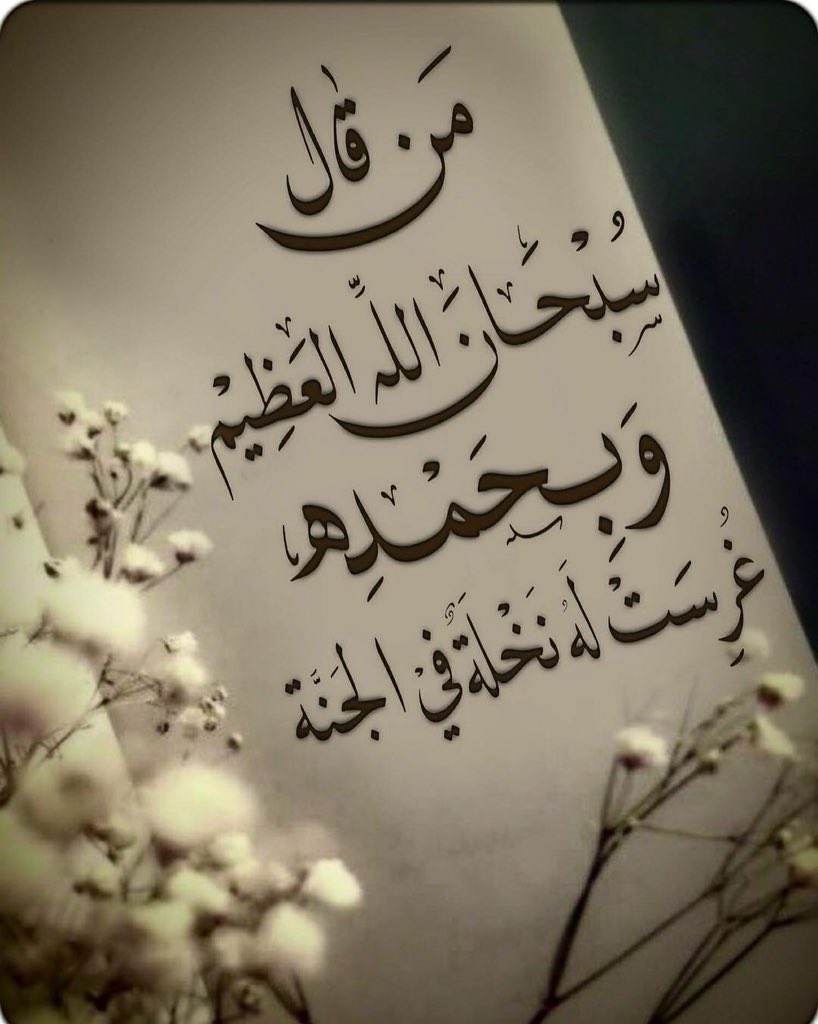 مَن قَال
سُبْحَانَ اللَّه العَظِيْم
وَبِحَمْدِه
غُرِسَتْ لَهُ نَخْلَةٌ فيْ الجَنَّة